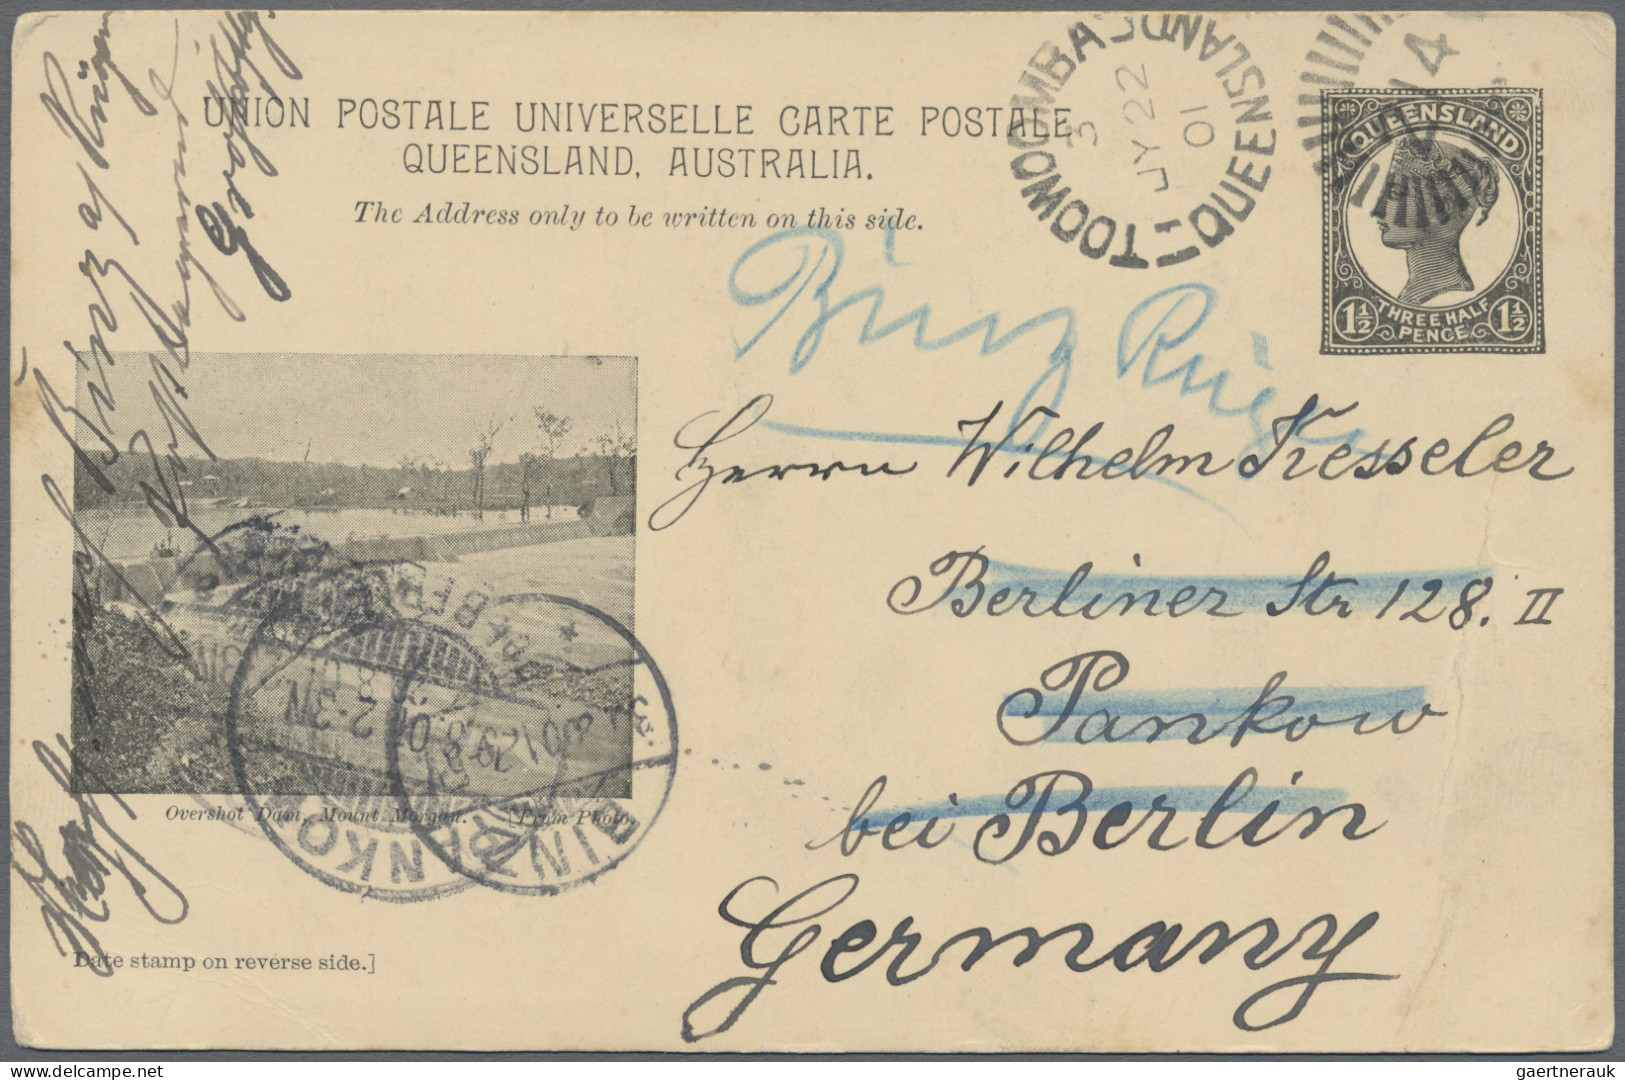 UNION POSTALE UNIVERSELLE CARTE POSTALE
QUEENSLAND, AUSTRALIA.
The Address only to be written on this side.
TOOWOOMBA
QUEENSLAND
3
JY 22
01
QUEENSLAND
1½ THREE HALF PENCE 1½
Binz Rügen
Herrn Wilhelm Kesseler
Berliner Str 128. II
Pankow
bei Berlin
Germany
Binz a/ Rügen
Overshot Dam, Mount Morgan. [From Photo.
PANKOW
BINZ
Date stamp on reverse side.]
gaertnerauk